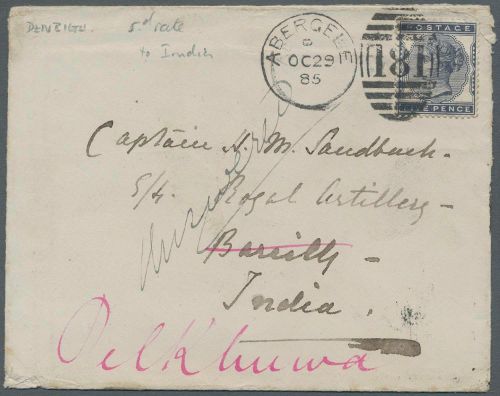 DENBIGH. 5.d rate
to India
ABERGELE
OC 29
85
181
POSTAGE
E PENCE
Captain H. M. Sandbach.
5/4. Royal Artillery -
Bareilly -
India.
Pilkhuwa